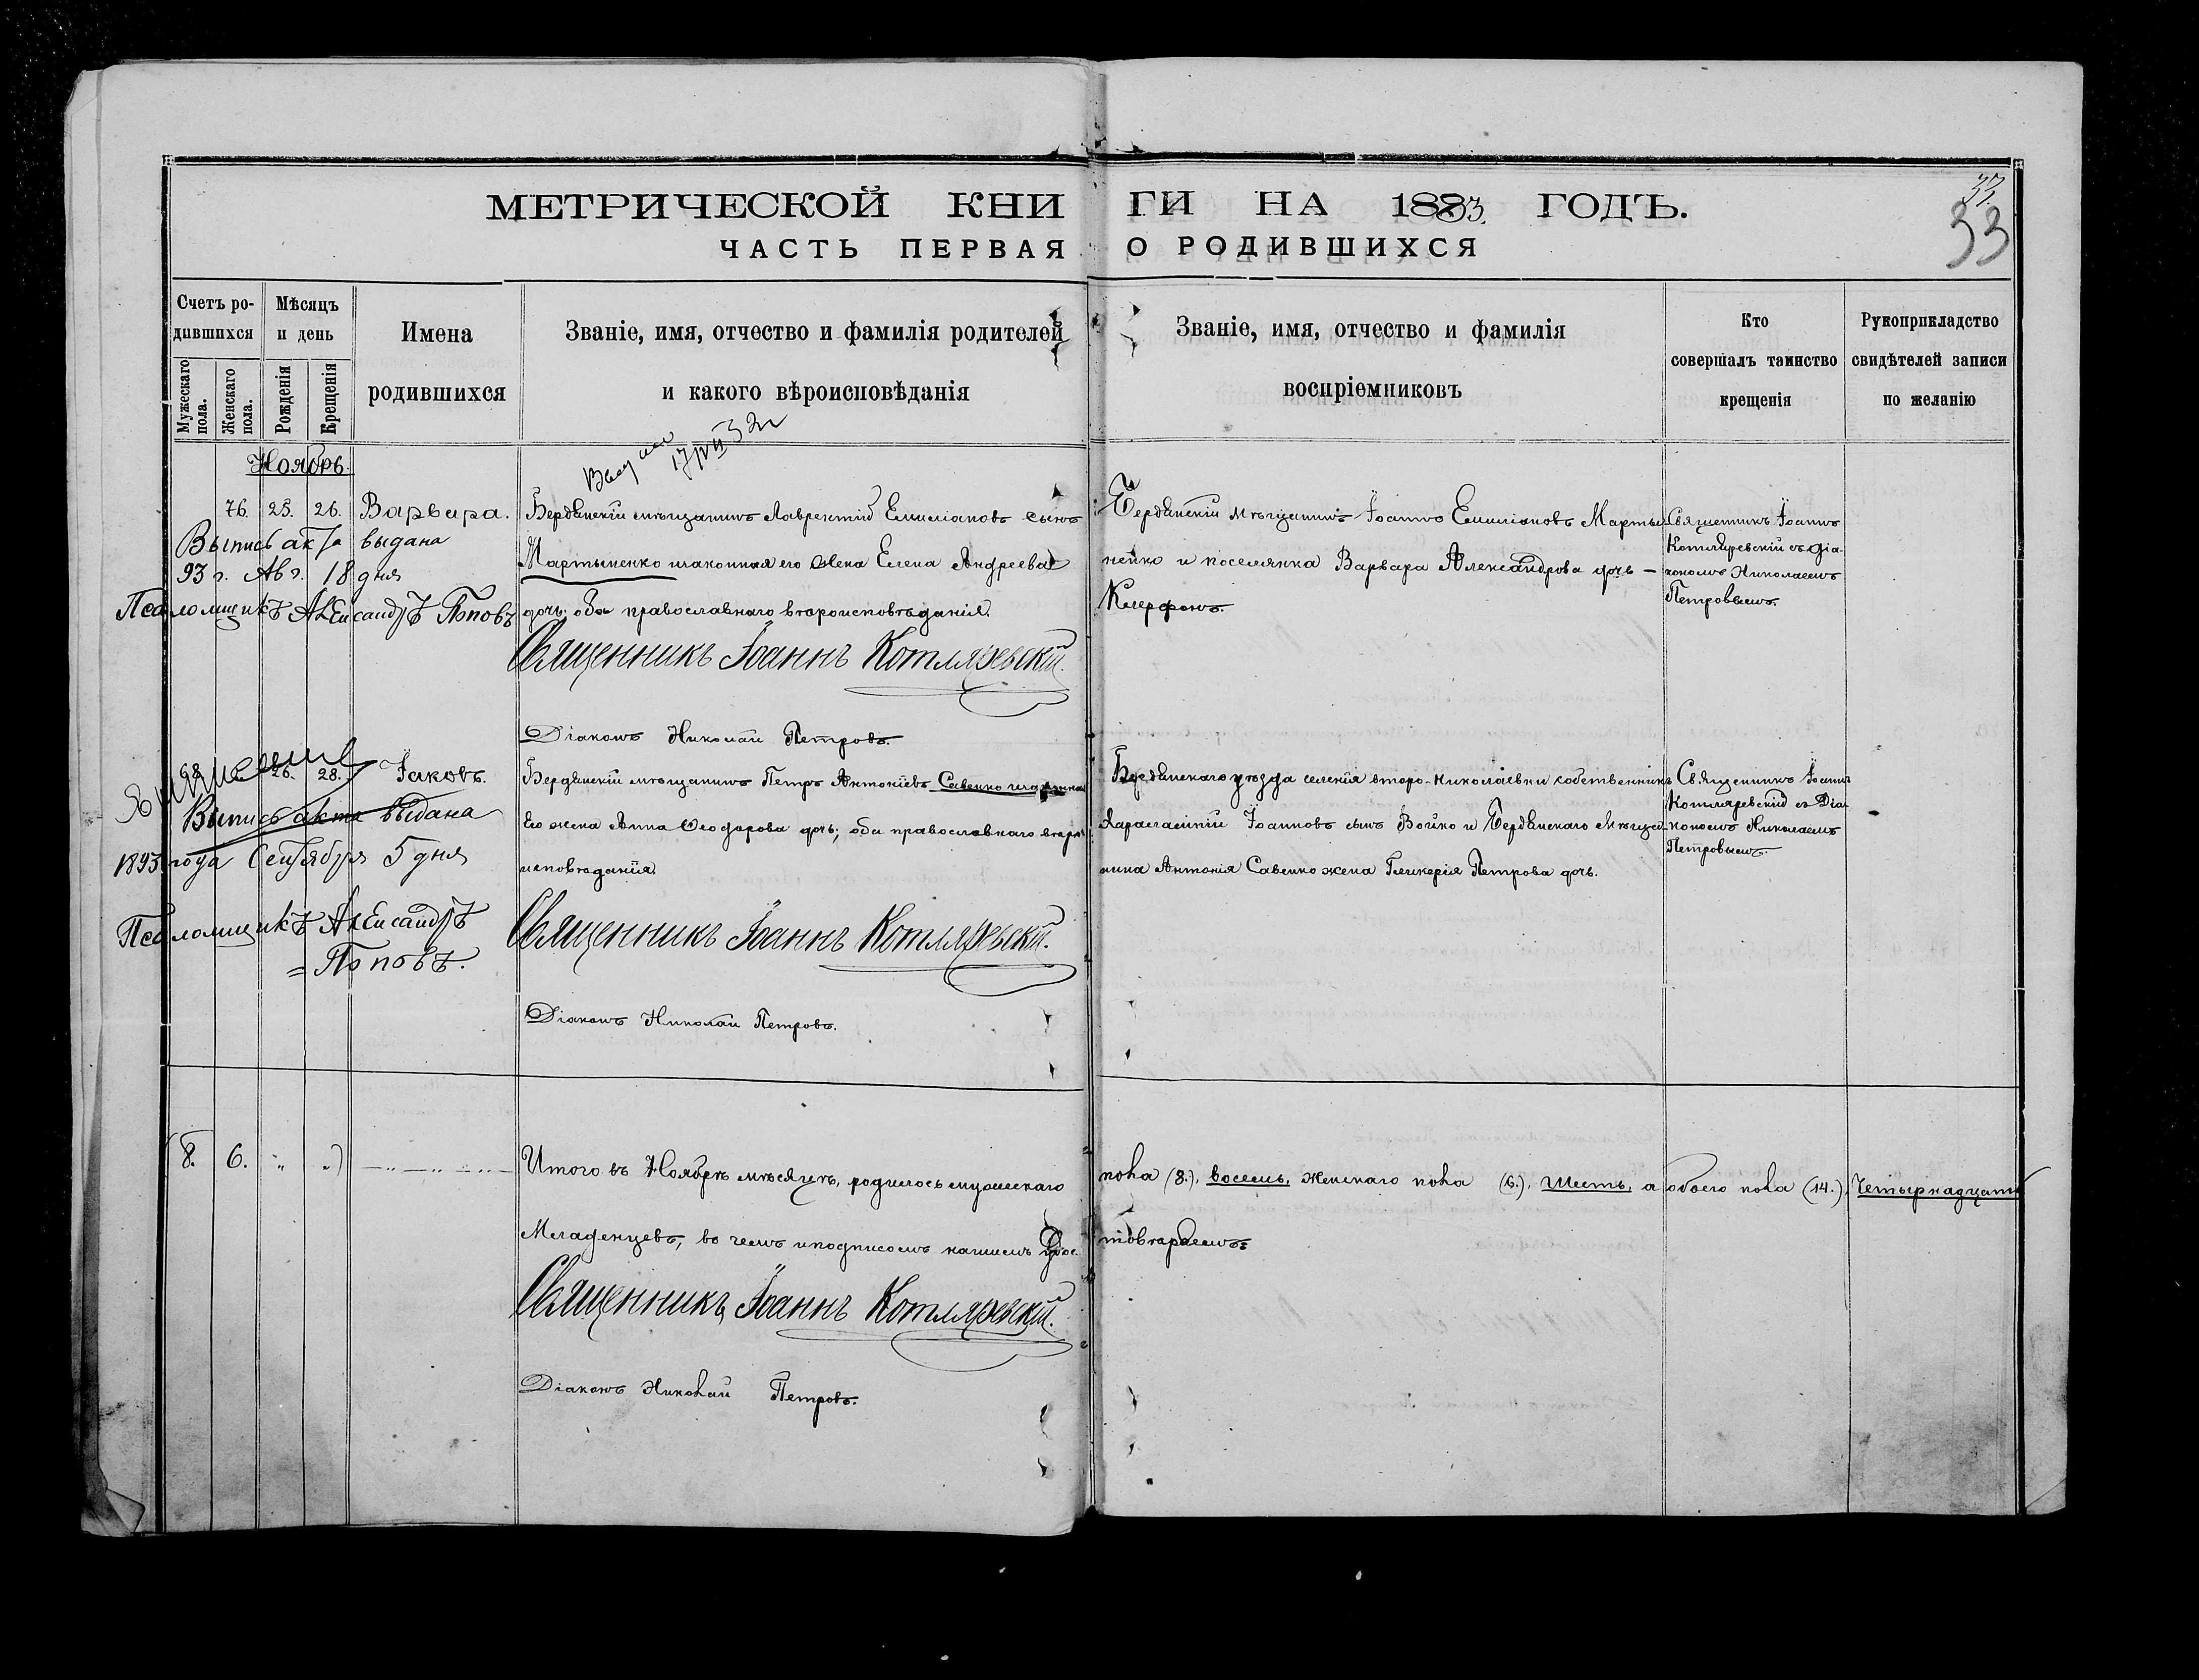 МЕТРИЧЕСКОЙ КНИГИ НА 1883 ГОДЪ.
ЧАСТЬ ПЕРВАЯ О РОДИВШИХСЯ
33
33
Счетъ родившихся
Мужескаго пола.
Женскаго пола.
Мѣсяцъ и день
Рожденія
Крещенія
Имена
родившихся
Званіе, имя, отчество и фамилія родителей
и какого вѣроисповѣданія
Званіе, имя, отчество и фамилія
воспріемниковъ
Кто
совершалъ таинство
крещенія
Рукоприкладство
свидѣтелей записи
по желанію
Ноябрь.
76. 25. 26. Варвара.
Выпись акта выдана
93 г. Авг. 18 дня
Псаломщикъ Александръ Поповъ
Бердянскій мѣщанинъ Лаврентій Емиліановъ сынъ
Мартыненко и законная его жена Елена Андреева
дочь; оба православнаго вѣроисповѣданія.
Священникъ Іоаннъ Котляревскій.
Діаконъ Николай Петровъ.
Бердянскій мѣщанинъ Іоаннъ Емиліановъ Марты-
ненко и поселянка Варвара Александрова дочь —
Священникъ Іоаннъ
Котляревскій съ Діа-
кономъ Николаемъ
Петровымъ.
68. 26. 28. Іаковъ.
Выпись акта выдана
1893 года Сентября 5 дня
Псаломщикъ Александръ
= Поповъ.
Бердянскій мѣщанинъ Петръ Антоніевъ Савенко и законная
его жена Анна Ѳеодорова дочь; оба православнаго вѣро-
исповѣданія.
Священникъ Іоаннъ Котляревскій.
Діаконъ Николай Петровъ.
Бердянскаго уѣзда селенія второ-Николаевки собственникъ
Харалампій Іоанновъ сынъ Бойко и Бердянскаго мѣща-
нина Антонія Савенко жена Гликерія Петрова дочь.
Священникъ Іоаннъ
Котляревскій съ Діа-
кономъ Николаемъ
Петровымъ.
8. 6.
Итого въ Ноябрѣ мѣсяцѣ, родилось мужескаго пола (8.), восемь, женскаго пола (6.), шесть, а обоего пола (14.), Четырнадцать
Младенцевъ, въ чемъ и подписомъ нашимъ удостовѣряемъ:
Священникъ Іоаннъ Котляревскій.
Діаконъ Николай Петровъ.